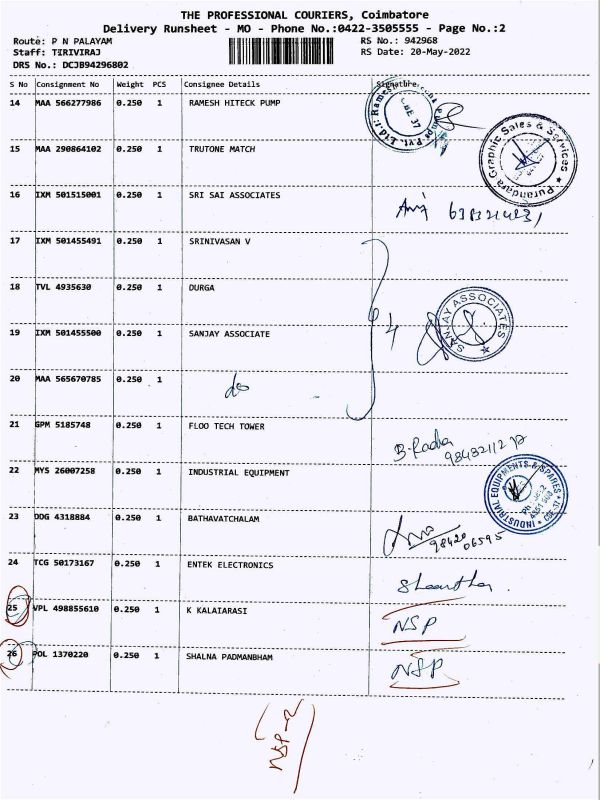 THE PROFESSIONAL COURIERS, Coimbatore
Delivery Runsheet - MO - Phone No.:0422-3505555 - Page No.:2
Route: P N PALAYAM RS No.: 942968
Staff: TIRIVIRAJ RS Date: 20-May-2022
DRS No.: DCJB94296802
S No Consignment No Weight PCS Consignee Details Signature
14 MAA 566277986 0.250 1 RAMESH HITECK PUMP
15 MAA 290864102 0.250 1 TRUTONE MATCH
Purandara Graphic Sales & Services
16 IXM 501515001 0.250 1 SRI SAI ASSOCIATES
17 IXM 501455491 0.250 1 SRINIVASAN V
18 TVL 4935630 0.250 1 DURGA
19 IXM 501455500 0.250 1 SANJAY ASSOCIATE
4
SANJAY ASSOCIATES
20 MAA 565670785 0.250 1
do
21 GPM 5185748 0.250 1 FLOO TECH TOWER
B. Radha
22 MYS 26007258 0.250 1 INDUSTRIAL EQUIPMENT
INDUSTRIAL EQUIPMENTS & SPARES
23 DDG 4318884 0.250 1 BATHAVATCHALAM
98420
06595
24 TCG 50173167 0.250 1 ENTEK ELECTRONICS
25 VPL 498855610 0.250 1 K KALAIARASI
NSP
26 POL 1370220 0.250 1 SHALNA PADMANBHAM
NSP
NSP-2